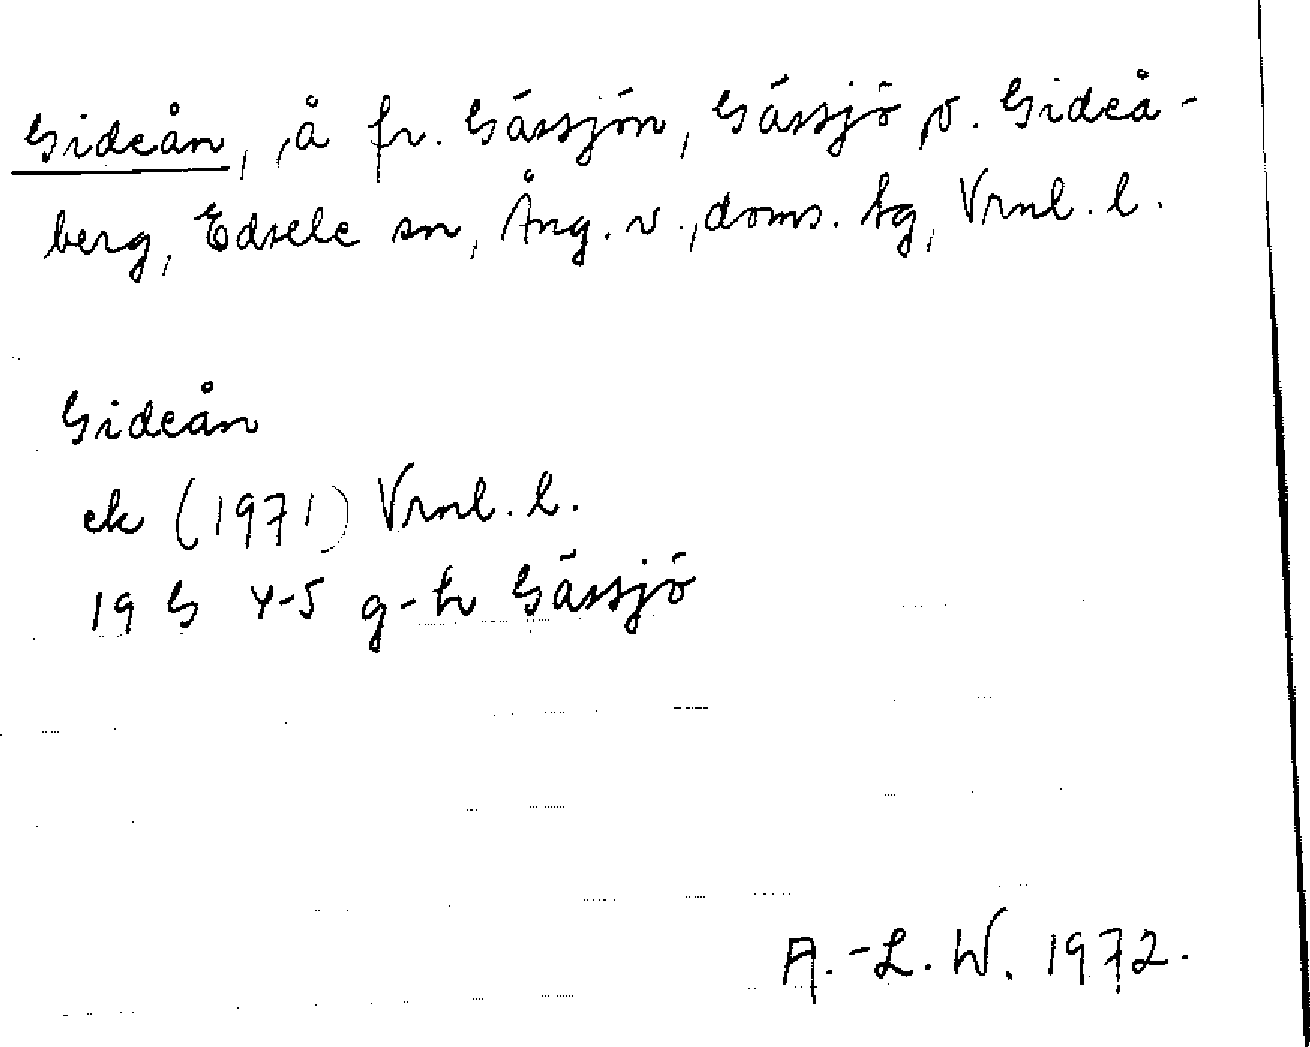 Gideån, å fr. Gässjön, Gässjö o. Gideå-
berg, Edsele sn, Ång. v., doms. tg, Vrnl. l.
Gideån
ek (1971) Vrnl. l.
19 G 4-5 g-h Gässjö
A.-L. W. 1972.